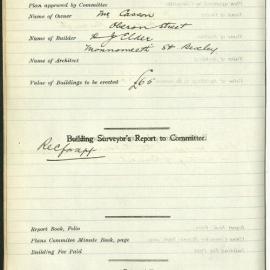 Plan approved by Committee
Name of Owner Mr Casson
Oberon Street
Name of Builder R J Elder
Monmouth St Bexley
Name of Architect
Value of Buildings to be erected £65
Building Surveyor's Report to Committee.
Rec for apprl
Report Book, Folio
Plans Committee Minute Book, page
Building Fee Paid